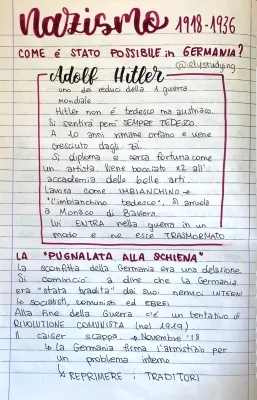 nazismo 1918-1936
COME é STATO POSSIBILE in GERMANIA?
@stystudying
Adolf Hitler
uno dei reduci della 1 guerra
mondiale
Hitler non é tedesco ma austriaco.
Si sentirà però SEMPRE TEDESCO.
A 10 anni rimane orfano e viene
cresciuto dagli zii.
Si diploma e cerca fortuna come
un artista. Viene bocciato x2 all'
accademia delle belle arti.
Lavora come IMBIANCHINO →
"l'imbianchino tedesco". Si arruola
a Monaco di Baviera
Lui ENTRA nella guerra in un
modo e ne esce TRASFORMATO
LA "PUGNALATA ALLA SCHIENA"
La sconfitta della Germania era una delusione.
Si cominciò a dire che la Germania
era "stata tradita" dai suoi nemici INTERNI
↳ socialisti, comunisti ed EBREI
Alla fine della Guerra c'è un tentativo di
RIVOLUZIONE COMUNISTA (nel 1919)
Il caiser scappa → Novembre '18
↳ la Germania firma l'armistizio per
un problema interno
↳ REPRIMERE i TRADITORI